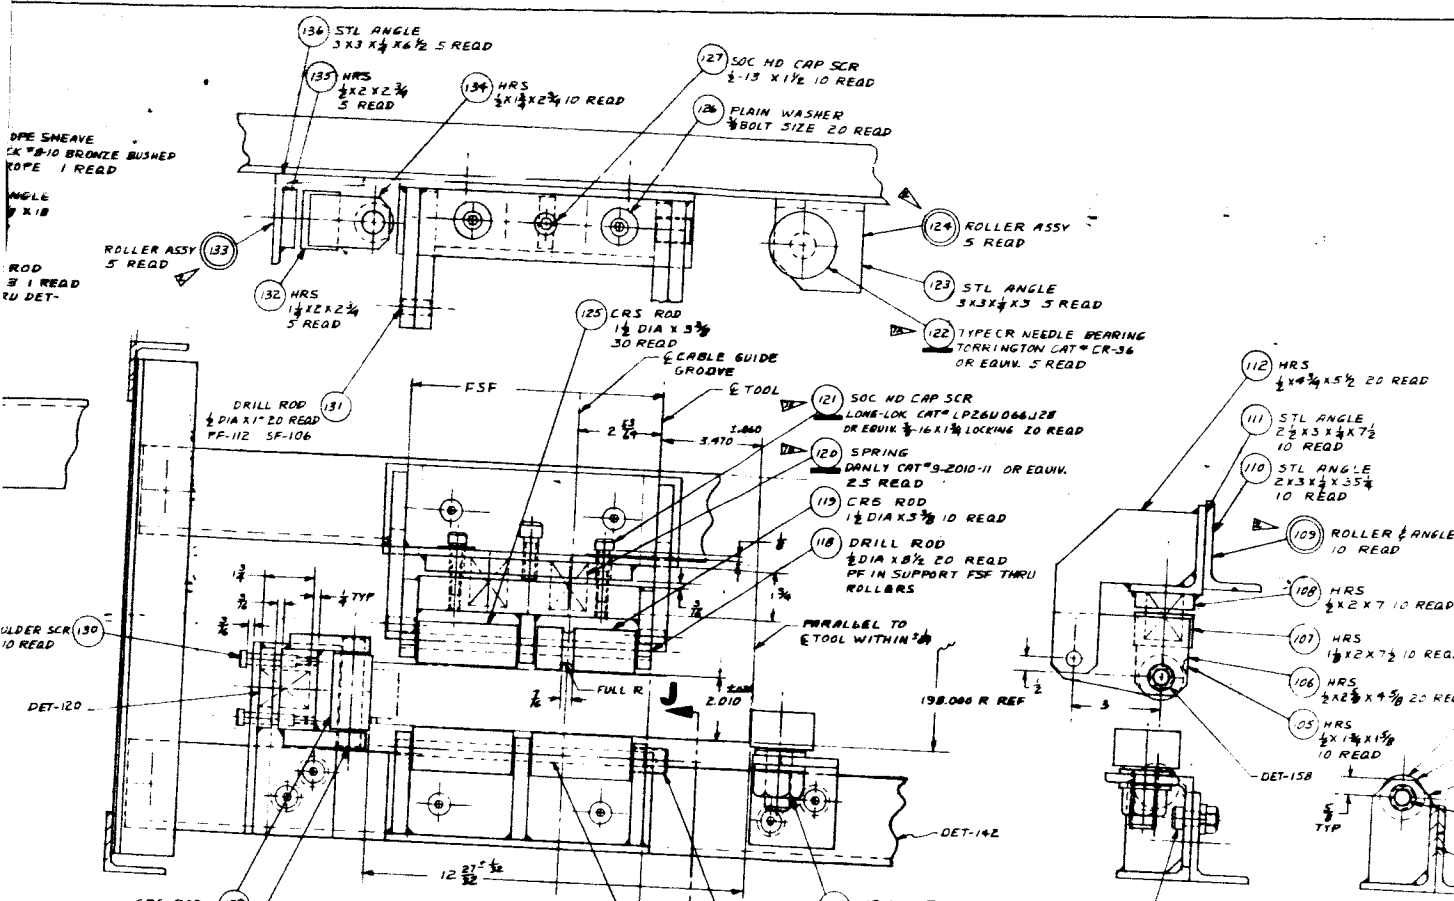 136 STL ANGLE
3 X 3 X 1/4 X 6 1/2 5 REQD
135 HRS
1/2 X 2 X 2 3/4
5 REQD
134 HRS
1/2 X 1 3/4 X 2 3/4 10 REQD
127 SOC HD CAP SCR
1/2-13 X 1 1/2 10 REQD
126 PLAIN WASHER
3/8 BOLT SIZE 20 REQD
OPE SHEAVE
CK #8-10 BRONZE BUSHED
ROPE 1 REQD
NGLE
X 18
ROD
3 1 REQD
RU DET-
ROLLER ASSY 133
5 REQD
132 HRS
1 1/4 X 2 X 2 3/4
5 REQD
124 ROLLER ASSY
5 REQD
123 STL ANGLE
3 X 3 X 1/4 X 3 5 REQD
122 TYPE CR NEEDLE BEARING
TORRINGTON CAT# CR-36
OR EQUIV. 5 REQD
125 CRS ROD
1 1/2 DIA X 3 3/8
30 REQD
℄ CABLE GUIDE
GROOVE
℄ TOOL
FSF
DRILL ROD 131
1/2 DIA X 1" 20 REQD
PF-112 SF-106
2 53/64
3.470
121 SOC HD CAP SCR
LONG-LOK CAT# LP26U066J28
OR EQUIV. 3/8-16 X 1 3/4 LOCKING 20 REQD
120 SPRING
DANLY CAT# 9-2010-11 OR EQUIV.
25 REQD
119 CRS ROD
1 1/2 DIA X 3 3/8 10 REQD
118 DRILL ROD
1/2 DIA X 8 1/2 20 REQD
PF IN SUPPORT FSF THRU
ROLLERS
112 HRS
1/2 X 4 3/4 X 5 1/2 20 REQD
111 STL ANGLE
2 1/2 X 3 X 1/4 X 7 1/2
10 REQD
110 STL ANGLE
2 X 3 X 1/4 X 35 1/4
10 REQD
109 ROLLER & ANGLE
10 REQD
108 HRS
1/2 X 2 X 7 10 REQD
107 HRS
1 1/8 X 2 X 7 1/2 10 REQD
106 HRS
1/2 X 2 5/8 X 4 5/8 20 REQD
105 HRS
1/2 X 1 3/4 X 1 5/8
10 REQD
1 3/4
3/16
1/4 TYP
3/16
3/16
1 3/4
ULDER SCR 130
10 REQD
PARALLEL TO
℄ TOOL WITHIN
DET-120
FULL R
7/16
J
2.010
198.000 R REF
1/2
3
DET-158
5/8
TYP
DET-142
12 27/32